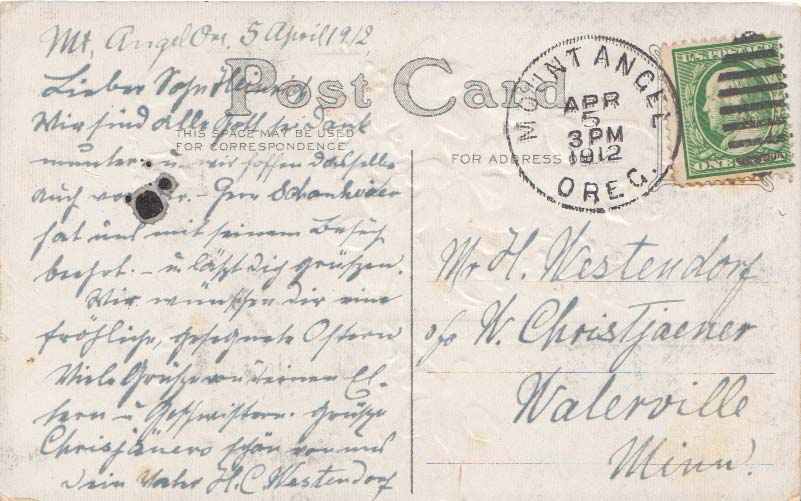 Mt. Angel Ore. 5 April 1912
Post Card
Lieber Sohn Heinrich
Wir sind alle Gott sei Dank
THIS SPACE MAY BE USED
FOR CORRESPONDENCE
munter, u. wir hoffen dasselbe
auch von Dir. – Herr
hat uns mit seinem Besuch
beehrt. – u. läßt Dich grüßen.
Wir wünschen Dir eine
fröhliche, gesegnete Ostern
Viele Grüße von deinen El-
tern u Geschwistern. Grüße
Christjäners schön von uns
Dein Vater H. C. Westendorf
MOUNT ANGEL
APR
5
3 PM
1912
OREG.
U.S. POSTAGE
FOR ADDRESS
Mr H. Westendorf
c/o W. Christjaener
Waterville
Minn.